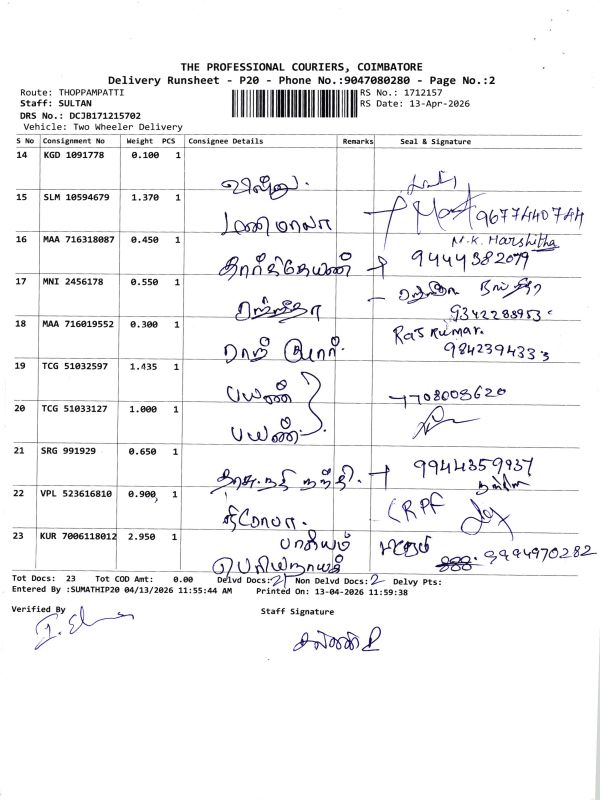 THE PROFESSIONAL COURIERS, COIMBATORE
Delivery Runsheet - P20 - Phone No.:9047080280 - Page No.:2
Route: THOPPAMPATTI RS No.: 1712157
Staff: SULTAN RS Date: 13-Apr-2026
DRS No.: DCJB171215702
Vehicle: Two Wheeler Delivery
S No Consignment No Weight PCS Consignee Details Remarks Seal & Signature
14 KGD 1091778 0.100 1
விஷ்ணு.
15 SLM 10594679 1.370 1
மணிமாலா 9677440744
16 MAA 716318087 0.450 1 M.K. Harshitha
கார்த்திகேயன் 9444382079
17 MNI 2456178 0.550 1
9342288953
18 MAA 716019552 0.300 1 Raj Kumar.
ராஜ் குமார். 9842394333
19 TCG 51032597 1.435 1
பயணி 7708003620
20 TCG 51033127 1.000 1
பயணி
21 SRG 991929 0.650 1
9944359937
22 VPL 523616810 0.900 1
நிரோஷா. CRPF
23 KUR 7006118012 2.950 1
பாக்கியம் 9994970282
பெரியநாயகி
Tot Docs: 23 Tot COD Amt: 0.00 Delvd Docs: 21 Non Delvd Docs: 2 Delvy Pts:
Entered By :SUMATHIP20 04/13/2026 11:55:44 AM Printed On: 13-04-2026 11:59:38
Verified By Staff Signature